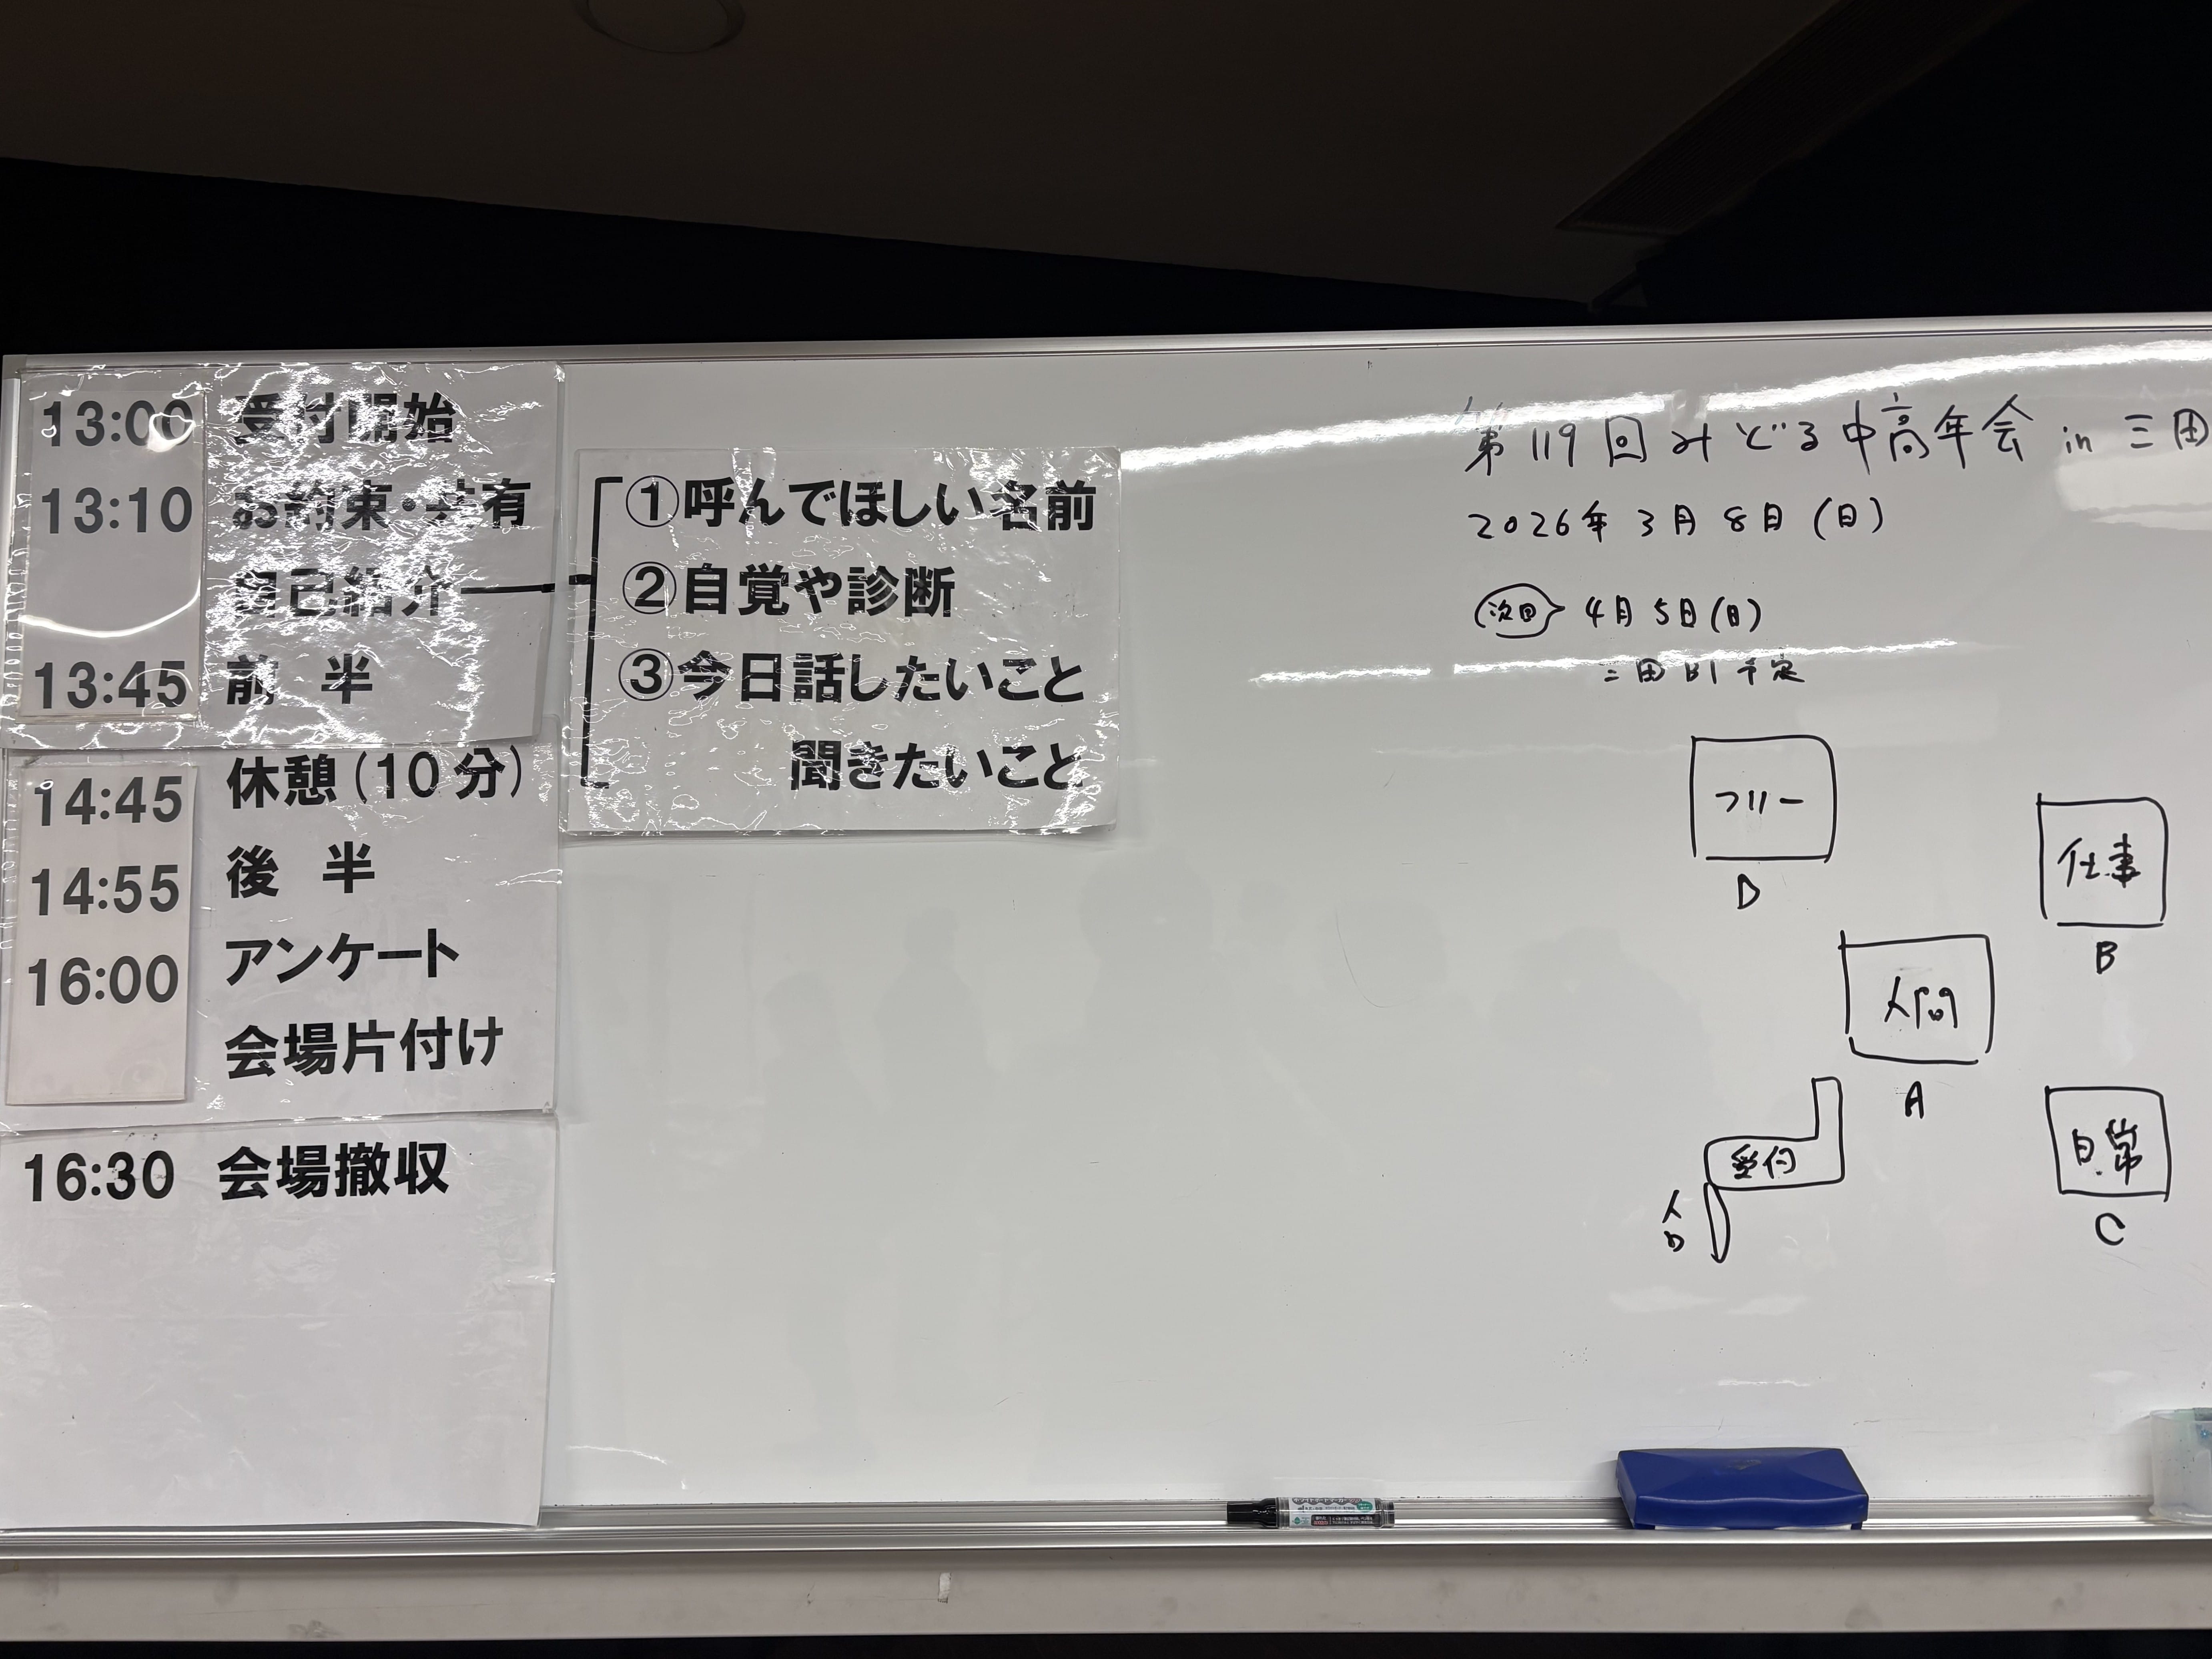 13:00 受付開始
13:10 お約束・共有
自己紹介
13:45 前 半
14:45 休憩(10分)
14:55 後 半
16:00 アンケート
会場片付け
16:30 会場撤収
①呼んでほしい名前
②自覚や診断
③今日話したいこと
聞きたいこと
第119回みどる中高年会 in 三田
2026年3月8日(日)
次回 4月5日(日)
三田B1予定
フリー
D
仕事
B
人間
A
受付
入口
日常
C